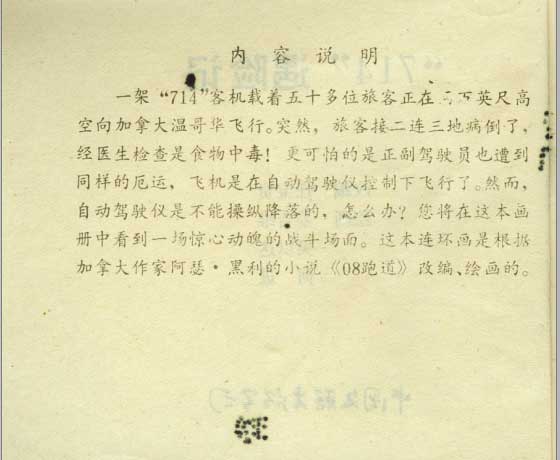 内容说明
一架“714”客机载着五十多位旅客正在 万英尺高
空向加拿大温哥华飞行。突然，旅客接二连三地病倒了，
经医生检查是食物中毒！更可怕的是正副驾驶员也遭到
同样的厄运，飞机是在自动驾驶仪控制下飞行了。然而，
自动驾驶仪是不能操纵降落的，怎么办？您将在这本画
册中看到一场惊心动魄的战斗场面。这本连环画是根据
加拿大作家阿瑟·黑利的小说《08跑道》改编、绘画的。